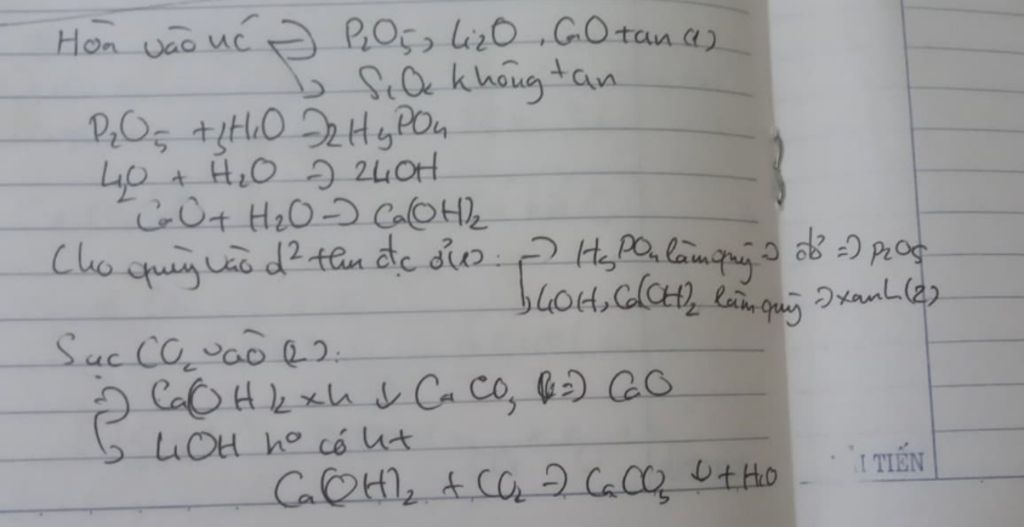 Hòa vào nc => P2O5, Li2O, CaO tan (1)
↳ SiO2 không tan
P2O5 + 3H2O => 2H3PO4
Li2O + H2O => 2LiOH
CaO + H2O -> Ca(OH)2
Cho quỳ vào d² tan đc ở (1): => H3PO4 làm quỳ => đỏ => P2O5
↳ LiOH, Ca(OH)2 làm quỳ => xanh (2)
Sục CO2 vào (2):
=> Ca(OH)2 xh ↓ CaCO3 => CaO
↳ LiOH ko có ht
Ca(OH)2 + CO2 => CaCO3 ↓ + H2O
I TIẾN